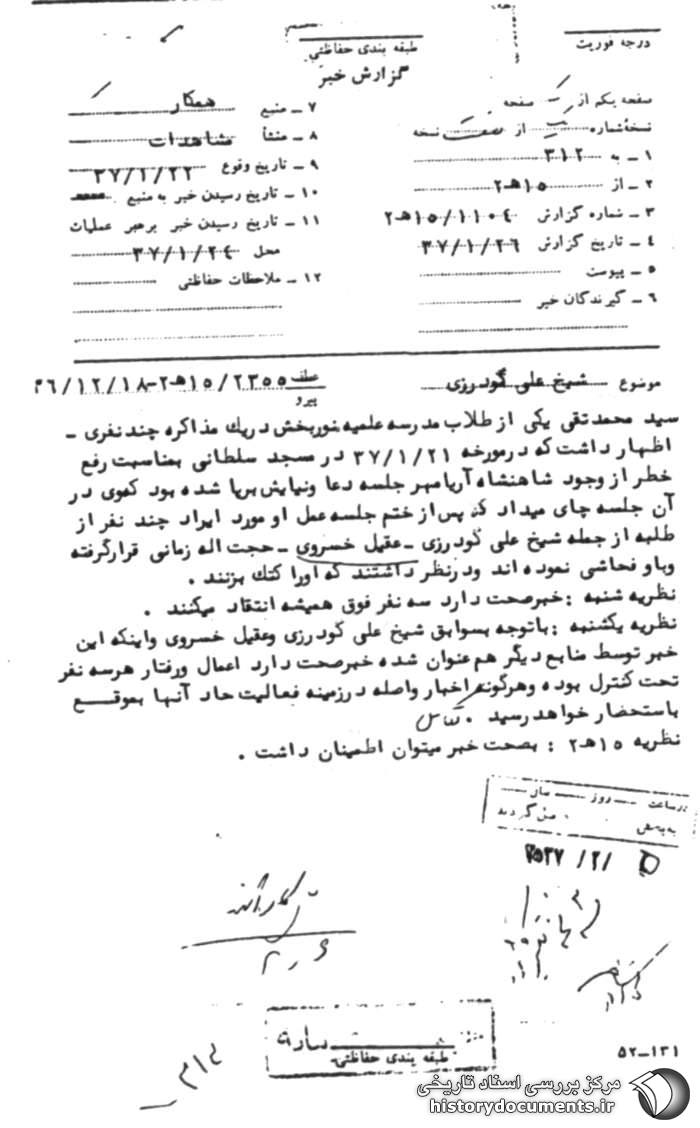 درجه فوریت
طبقه بندی حفاظتی
گزارش خبر
صفحه یکم از صفحه
نسخهٔ شماره از نسخه
۱ ـ به ۳۱۲
۲ ـ از ۱۵هـ۲
۳ ـ شماره گزارش ۲هـ۱۵/۱۱۰۴
۴ ـ تاریخ گزارش ۳۷/۱/۲۶
۵ ـ پیوست
۶ ـ گیرندگان خبر
۷ ـ منبع همکار
۸ ـ منشأ مشاهدات
۹ ـ تاریخ وقوع ۳۷/۱/۲۲
۱۰ ـ تاریخ رسیدن خبر به منبع
۱۱ ـ تاریخ رسیدن خبر برهبر عملیات
محل ۳۷/۱/۲۴
۱۲ ـ ملاحظات حفاظتی
موضوع شیخ علی گودرزی
عطف ۲۳۵۵/۱۵هـ۲-۳۶/۱۲/۱۸
پیرو
سید محمدتقی یکی از طلاب مدرسه علمیه نوربخش دریك مذاکره چند نفری ـ
اظهار داشت که درمورخه ۳۷/۱/۲۱ در مسجد سلطانی بمناسبت رفع
خطر از وجود شاهنشاه آریامهر جلسه دعا ونیایش برپا شده بود که وی در
آن جلسه چای میداد که پس از ختم جلسه عمل او مورد ایراد چند نفر از
طلبه از جمله شیخ علی گودرزی ـ عقیل خسروی ـ حجت اله زمانی قرارگرفته
وباو فحاشی نموده اند ودرنظر داشتند که اورا کتك بزنند .
نظریه شنبه : خبرصحت دارد سه نفر فوق همیشه انتقاد میکنند .
نظریه یکشنبه : باتوجه بسوابق شیخ علی گودرزی وعقیل خسروی واینکه این
خبر توسط منابع دیگر هم عنوان شده خبرصحت دارد اعمال ورفتار هرسه نفر
تحت کنترل بوده وهرگونه اخبار واصله درزمینه فعالیت حاد آنها بموقع
باستحضار خواهد رسید .
نظریه ۱۵هـ۲ : بصحت خبر میتوان اطمینان داشت .
درساعت روز سال
به بخش گردید
۲۵۳۷/۲/۵
طبقه بندی حفاظتی
۳۱۲
۵۲ـ۱۳۱
مرکز بررسی اسناد تاریخی
historydocuments.ir